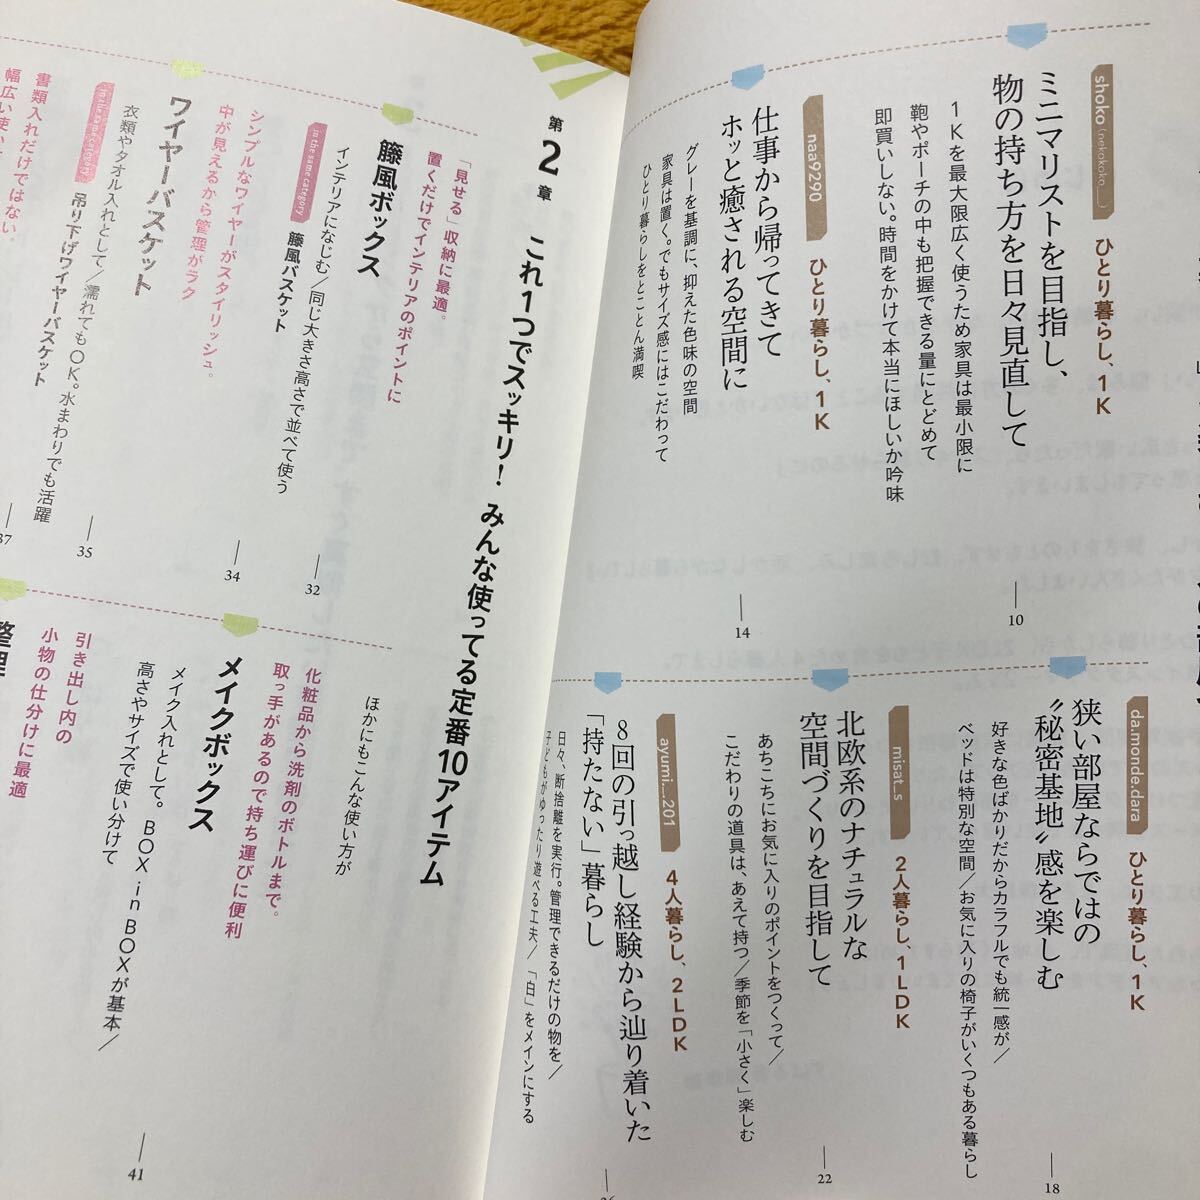 shoko (nekokoko__)
ひとり暮らし、1K
ミニマリストを目指し、
物の持ち方を日々見直して
1Kを最大限広く使うため家具は最小限に
鞄やポーチの中も把握できる量にとどめて
即買いしない。時間をかけて本当にほしいか吟味
10
naa9290
ひとり暮らし、1K
仕事から帰ってきて
ホッと癒される空間に
グレーを基調に、抑えた色味の空間
家具は置く。でもサイズ感にはこだわって
ひとり暮らしをとことん満喫
14
da.monde.dara
ひとり暮らし、1K
狭い部屋ならではの
〝秘密基地〟感を楽しむ
好きな色ばかりだからカラフルでも統一感が／
ベッドは特別な空間／お気に入りの椅子がいくつもある暮らし
18
misat_s
2人暮らし、1LDK
北欧系のナチュラルな
空間づくりを目指して
あちこちにお気に入りのポイントをつくって／
こだわりの道具は、あえて持つ／季節を「小さく」楽しむ
22
ayumi._.201
4人暮らし、2LDK
8回の引っ越し経験から辿り着いた
「持たない」暮らし
日々、断捨離を実行。管理できるだけの物を／
子どもがゆったり遊べる工夫／「白」をメインにする
26
第2章 これ1つでスッキリ！ みんな使ってる定番10アイテム
「見せる」収納に最適。
置くだけでインテリアのポイントに
籐風ボックス
インテリアになじむ／同じ大きさ高さで並べて使う
32
in the same category
籐風バスケット
34
シンプルなワイヤーがスタイリッシュ。
中が見えるから管理がラク
ワイヤーバスケット
衣類やタオル入れとして／濡れてもOK。水まわりでも活躍
35
in the same category
吊り下げワイヤーバスケット
37
書類入れだけではない。
幅広い使い
ほかにもこんな使い方が
化粧品から洗剤のボトルまで。
取っ手があるので持ち運びに便利
メイクボックス
メイク入れとして。BOX in BOXが基本／
高さやサイズで使い分けて
41
引き出し内の
小物の仕分けに最適
整理